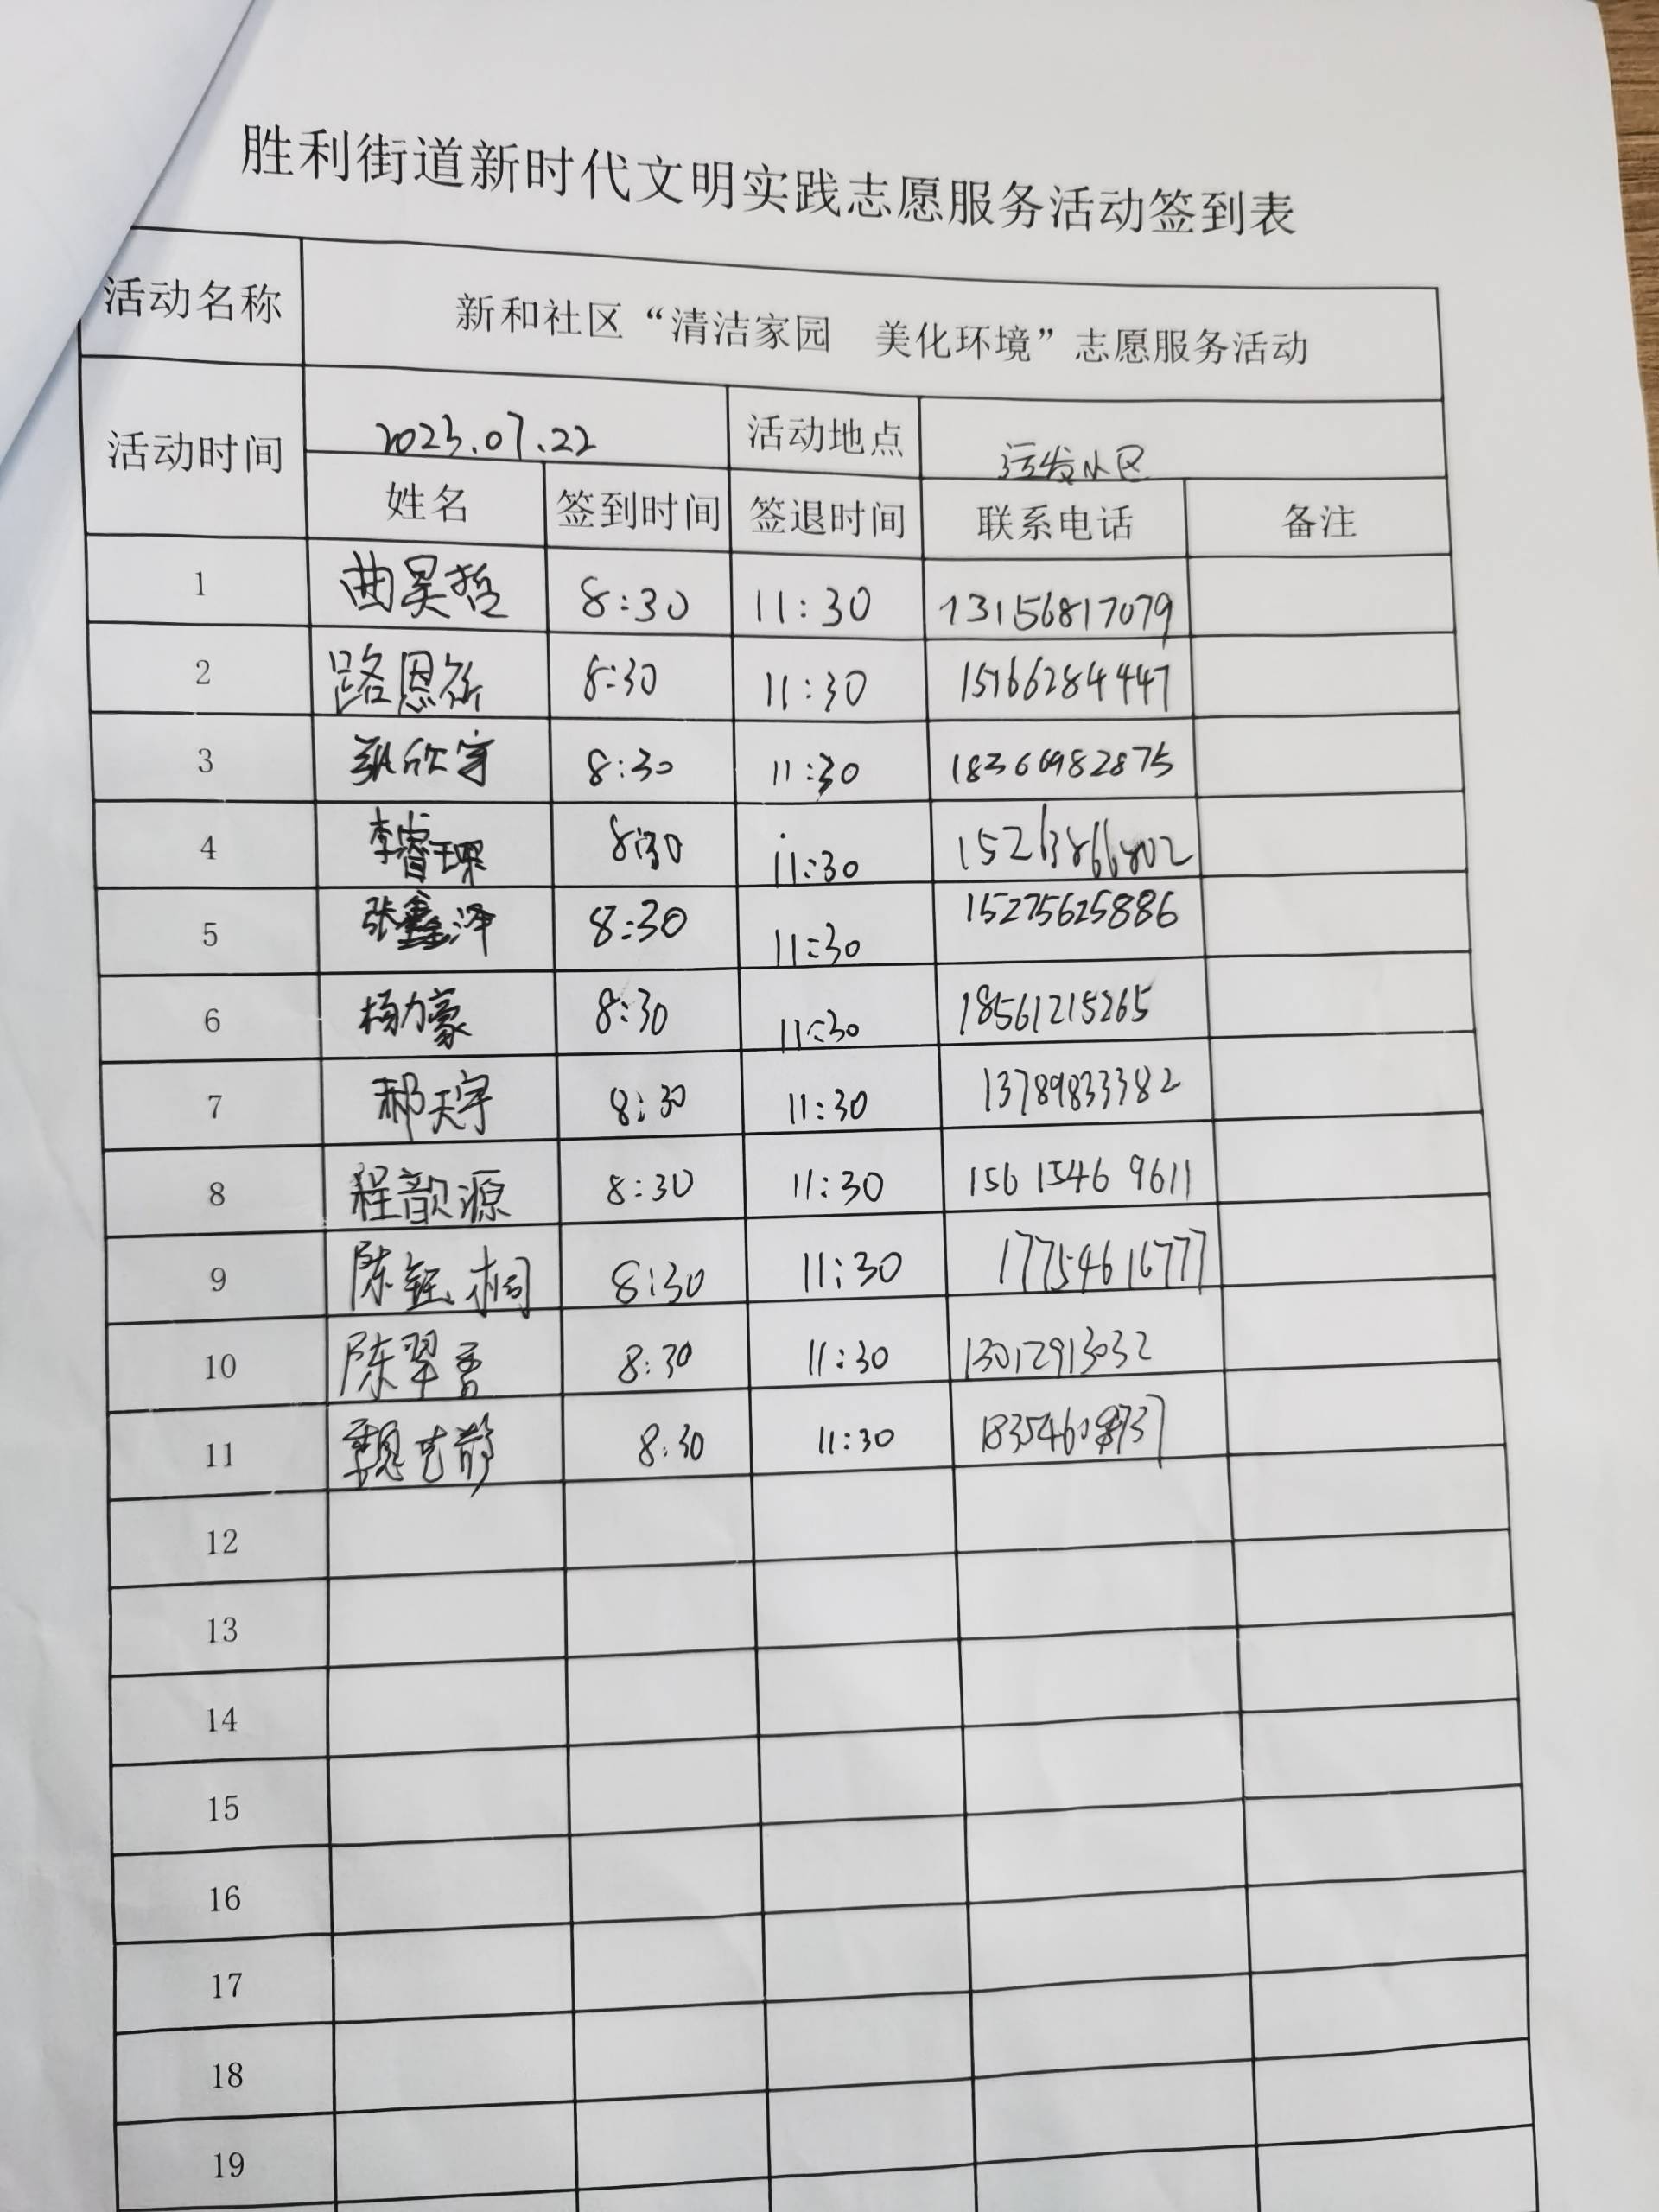 胜利街道新时代文明实践志愿服务活动签到表
活动名称 新和社区“清洁家园 美化环境”志愿服务活动
活动时间 2023.07.22 活动地点 运发小区
姓名 签到时间 签退时间 联系电话 备注
1 曲昊哲 8:30 11:30 13156817079
2 路恩 8:30 11:30 15166284447
3 张欣宇 8:30 11:30 18366982875
4 李睿琪 8:30 11:30 15263866802
5 张鑫泽 8:30 11:30 15275625886
6 杨力豪 8:30 11:30 18561215265
7 郝天宇 8:30 11:30 13789833382
8 程歆源 8:30 11:30 156 1546 9611
9 陈钰桐 8:30 11:30 17754616777
10 陈翠香 8:30 11:30 13012913032
11 魏 8:30 11:30
12
13
14
15
16
17
18
19